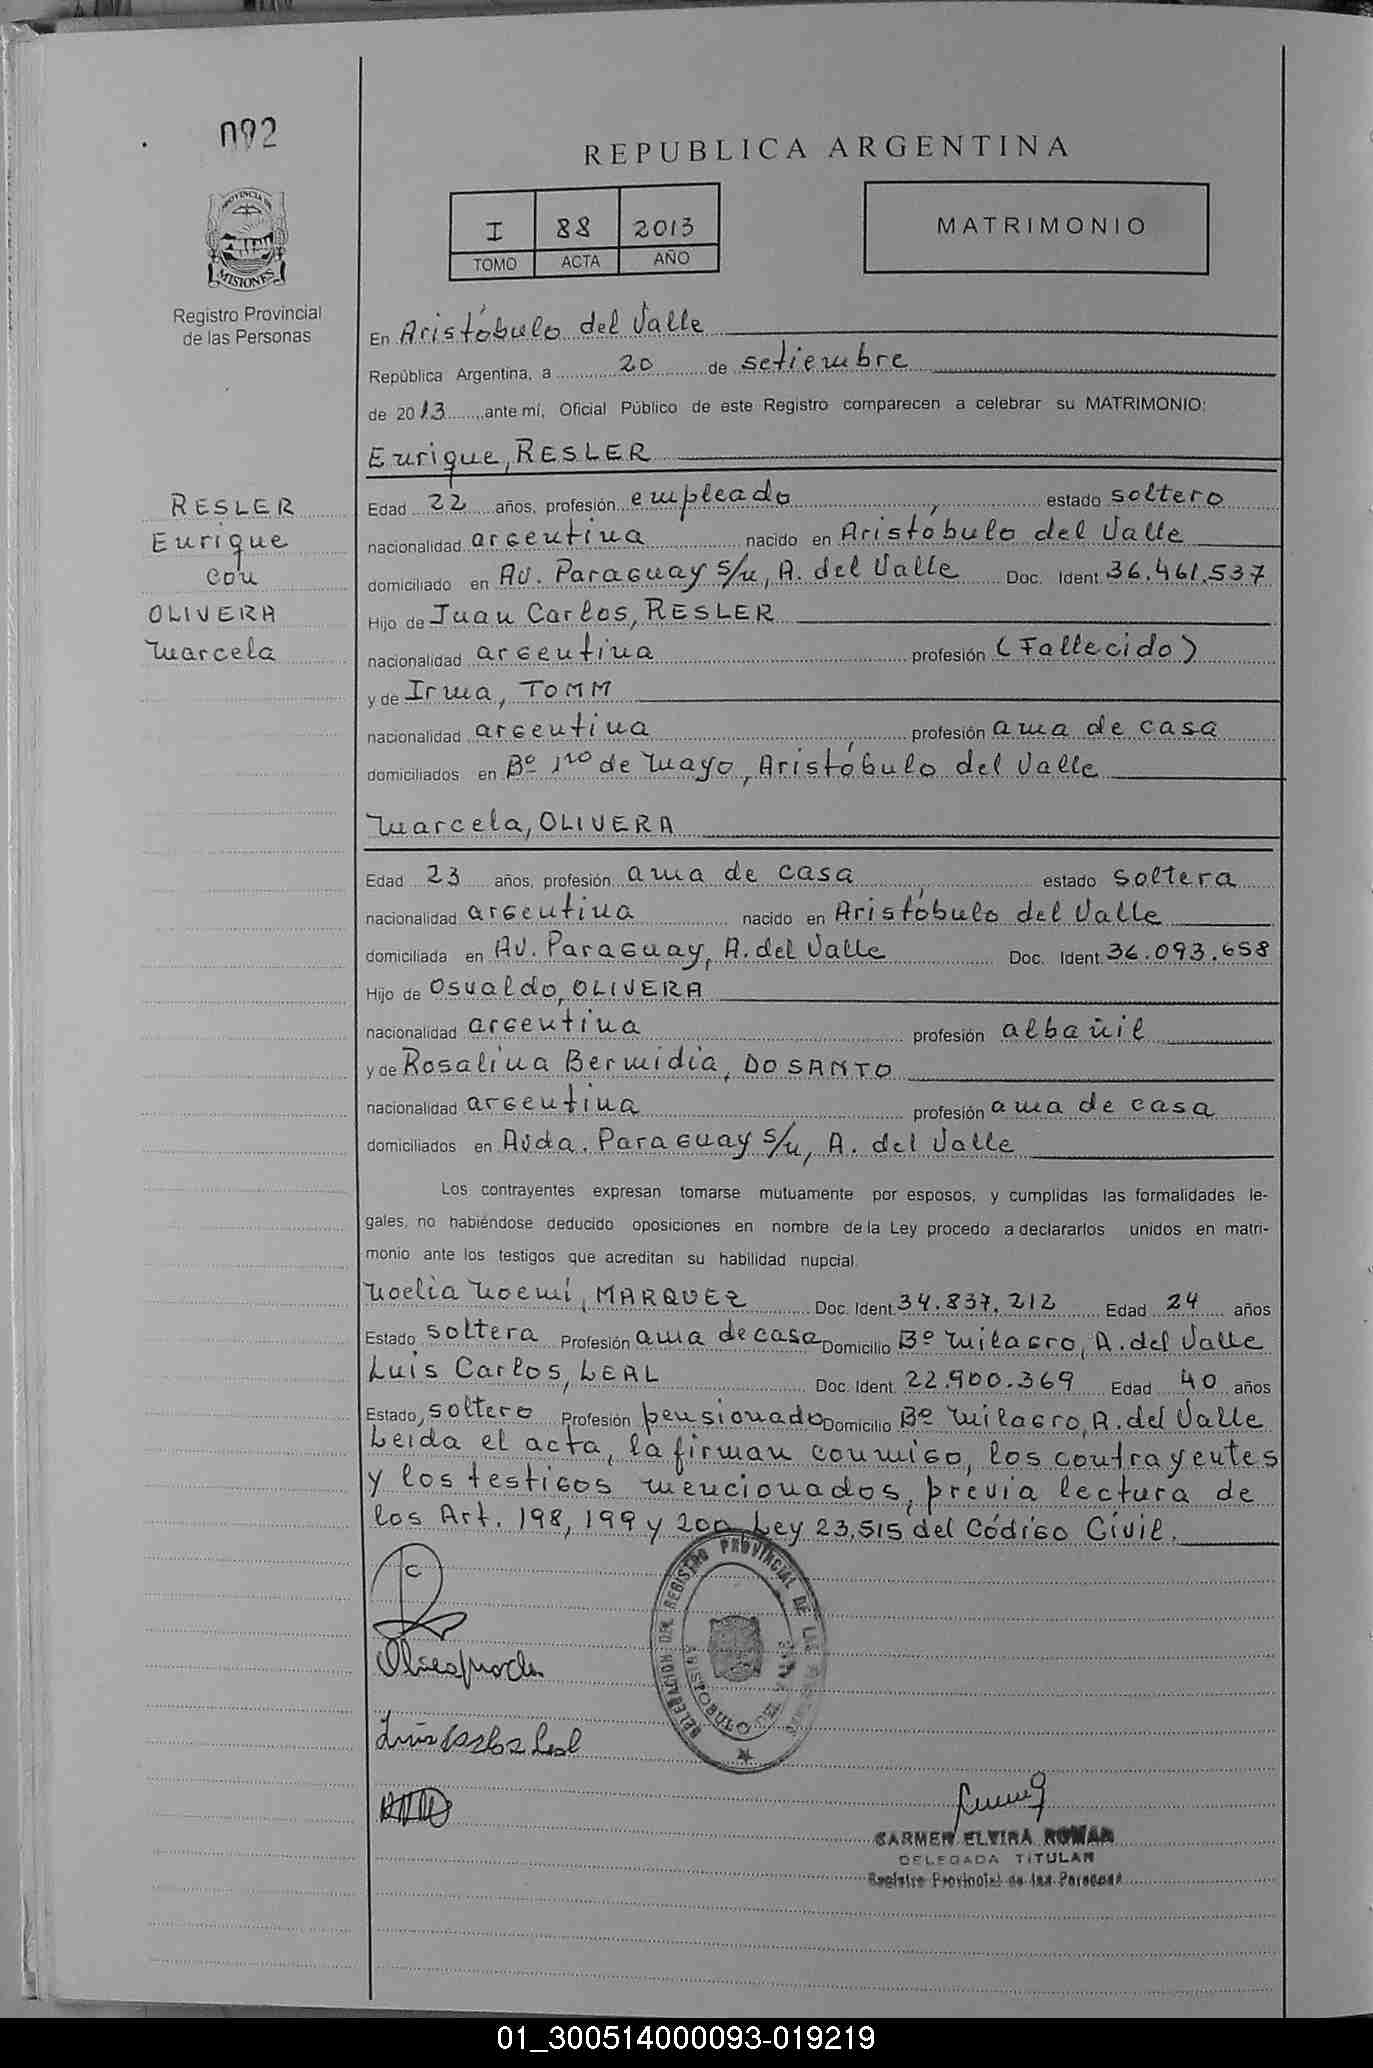 092
REPUBLICA ARGENTINA
PROVINCIA DE
MISIONES
I 88 2013
TOMO ACTA AÑO
MATRIMONIO
Registro Provincial
de las Personas
En Aristóbulo del Valle
República Argentina, a 20 de setiembre
de 2013 ante mí, Oficial Público de este Registro comparecen a celebrar su MATRIMONIO:
Enrique, RESLER
RESLER
Enrique
con
OLIVERA
Marcela
Edad 22 años, profesión empleado estado soltero
nacionalidad argentina nacido en Aristóbulo del Valle
domiciliado en Av. Paraguay s/n, A. del Valle Doc. Ident. 36.461.537
Hijo de Juan Carlos, RESLER
nacionalidad argentina profesión (Fallecido)
y de Irma, TOMM
nacionalidad argentina profesión ama de casa
domiciliados en Bº 1ro de Mayo, Aristóbulo del Valle
Marcela, OLIVERA
Edad 23 años, profesión ama de casa estado soltera
nacionalidad argentina nacido en Aristóbulo del Valle
domiciliada en Av. Paraguay, A. del Valle Doc. Ident. 36.093.658
Hijo de Osvaldo, OLIVERA
nacionalidad argentina profesión albañil
y de Rosalina Bermidia, DO SANTO
nacionalidad argentina profesión ama de casa
domiciliados en Avda. Paraguay s/n, A. del Valle
Los contrayentes expresan tomarse mutuamente por esposos, y cumplidas las formalidades le-
gales, no habiéndose deducido oposiciones en nombre de la Ley procedo a declararlos unidos en matri-
monio ante los testigos que acreditan su habilidad nupcial.
Noelia Noemí, MARQUEZ Doc. Ident. 34.837.212 Edad 24 años
Estado soltera Profesión ama de casa Domicilio Bº Milagro, A. del Valle
Luis Carlos, LEAL Doc. Ident. 22.900.369 Edad 40 años
Estado, soltero Profesión pensionado Domicilio Bº Milagro, A. del Valle
Leida el acta, la firman conmigo, los contrayentes
y los testigos mencionados, previa lectura de
los Art. 198, 199 y 200, Ley 23.515 del Código Civil.
DELEGACION DEL REGISTRO PROVINCIAL DE LAS
ARISTOBULO DEL
Luis Carlos Leal
CARMEN ELVIRA ROMAN
DELEGADA TITULAR
Registro Provincial de las Personas
01_300514000093-019219